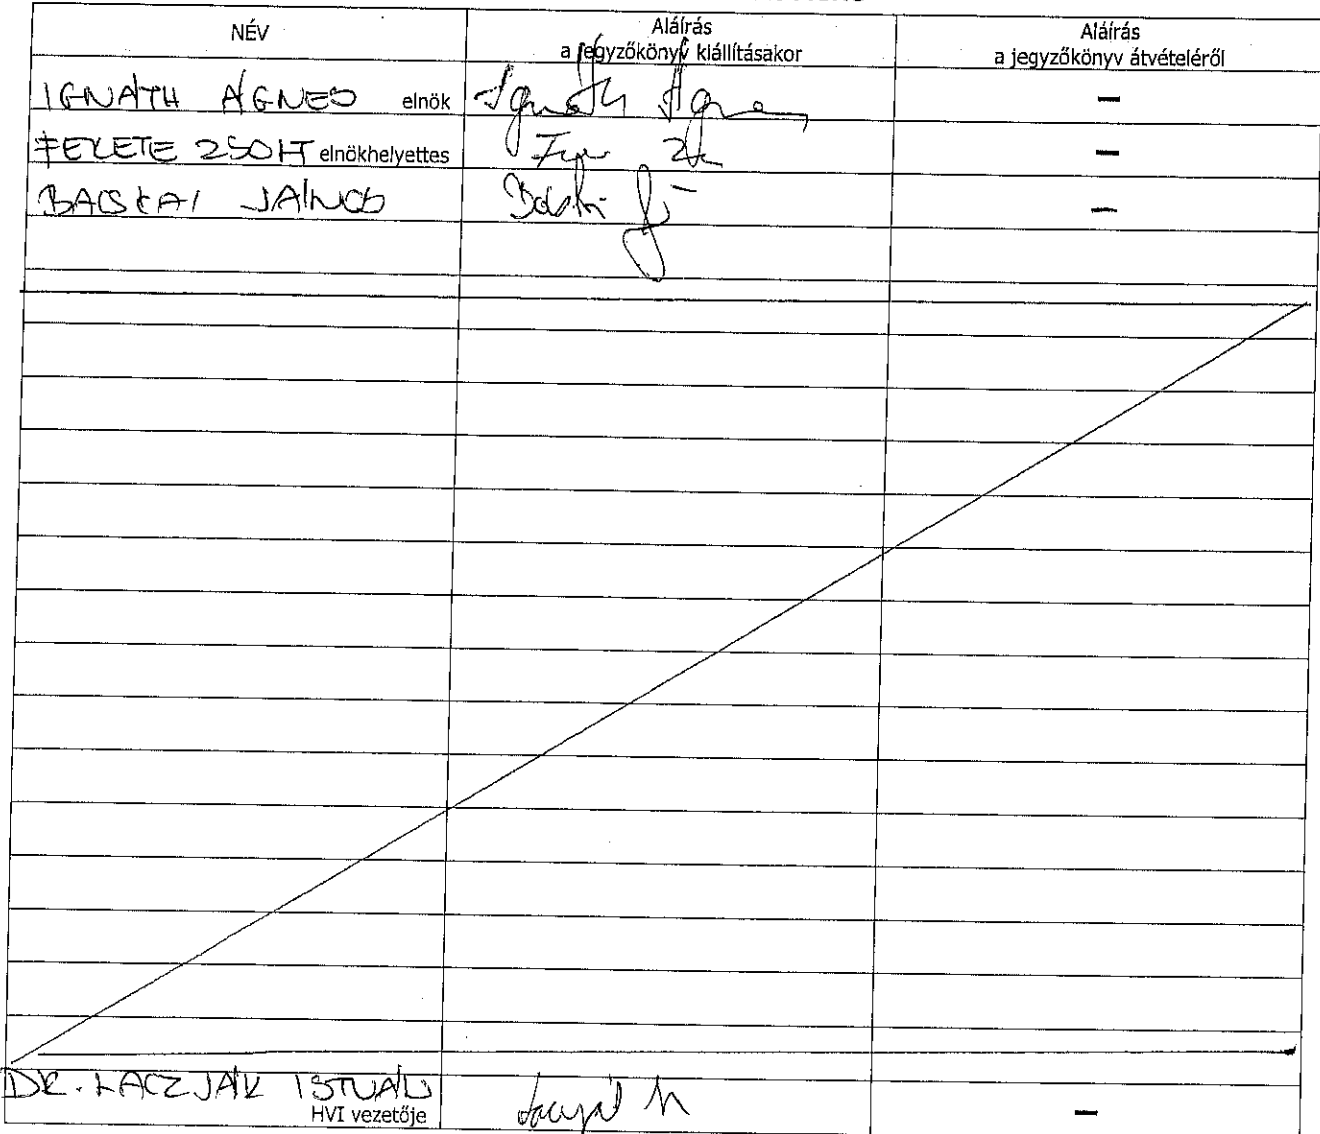 NÉV
Aláírás
a jegyzőkönyv kiállításakor
Aláírás
a jegyzőkönyv átvételéről
IGNÁTH ÁGNES elnök Ignáth Ágnes –
FEKETE ZSOLT elnökhelyettes –
BACSKAI JÁNOS –
DR. LACZJÁK ISTVÁN
HVI vezetője –